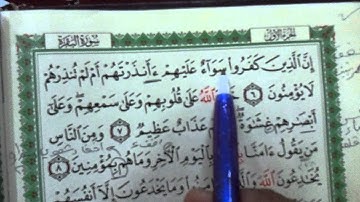 الجزء الأول
سورة البقرة
إِنَّ الَّذِينَ كَفَرُوا سَوَاءٌ عَلَيْهِمْ ءَأَنذَرْتَهُمْ أَمْ لَمْ تُنذِرْهُمْ
لَا يُؤْمِنُونَ ٦ اللَّهُ عَلَىٰ قُلُوبِهِمْ وَعَلَىٰ سَمْعِهِمْ وَعَلَىٰ
أَبْصَارِهِمْ غِشَاوَةٌ عَذَابٌ عَظِيمٌ ٧ وَمِنَ النَّاسِ
مَن يَقُولُ ءَامَنَّا بِالْيَوْمِ الْآخِرِ وَمَا هُم بِمُؤْمِنِينَ ٨
يُخَادِعُونَ اللَّهَ ءَامَنُوا وَمَا يَخْدَعُونَ إِلَّا أَنفُسَهُمْ